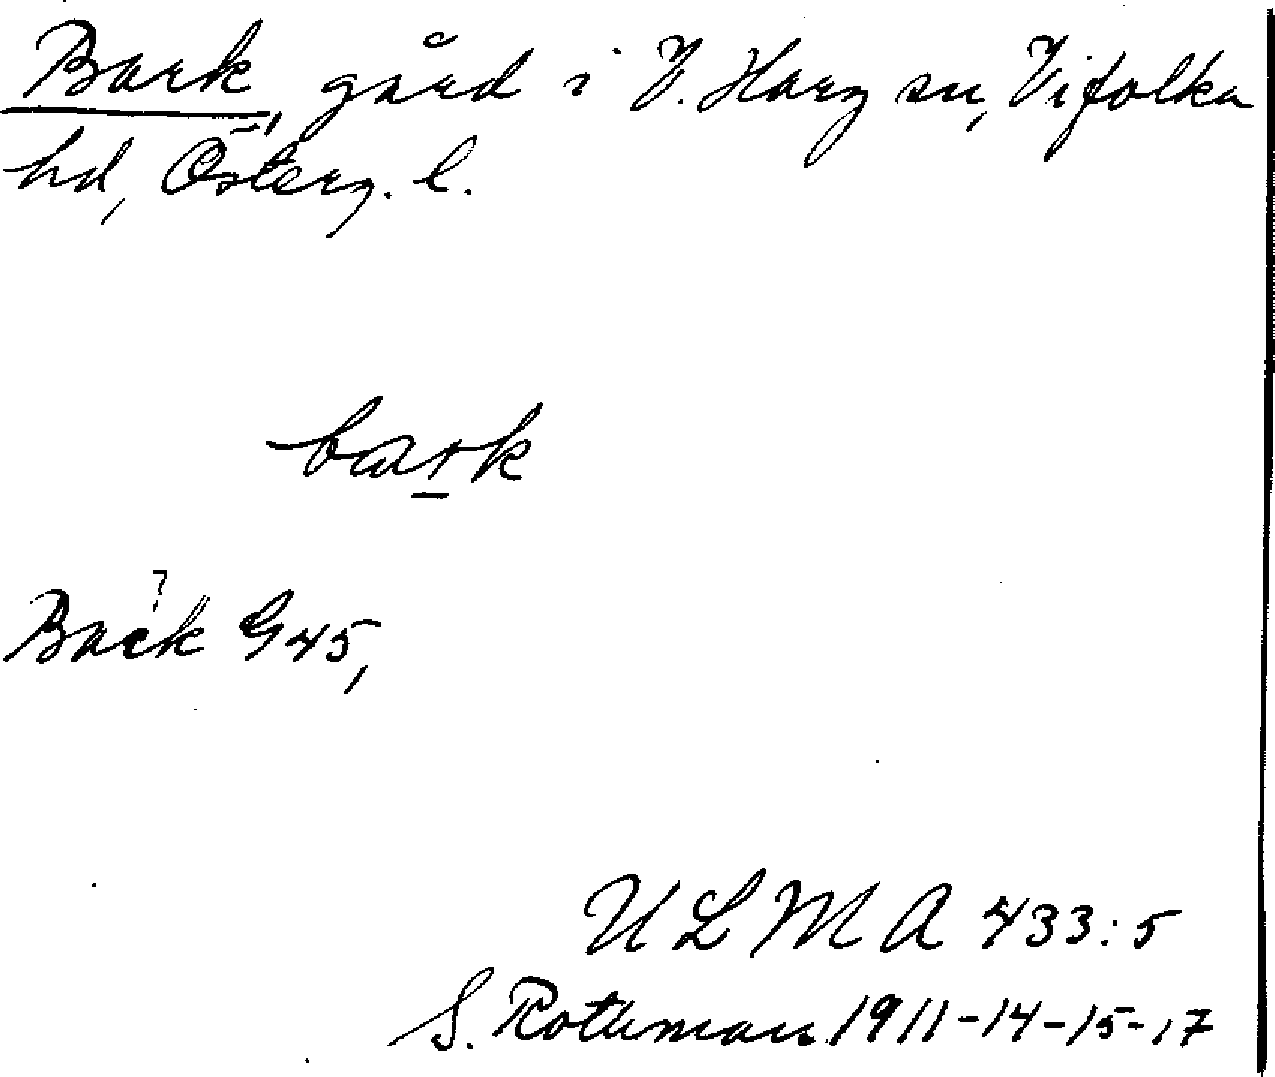 Bark, gård i V. Harg sn, Vifolka
hd, Österg. l.
bark
Back G 45,
ULMA 433:5
S. Rothman 1911-14-15-17